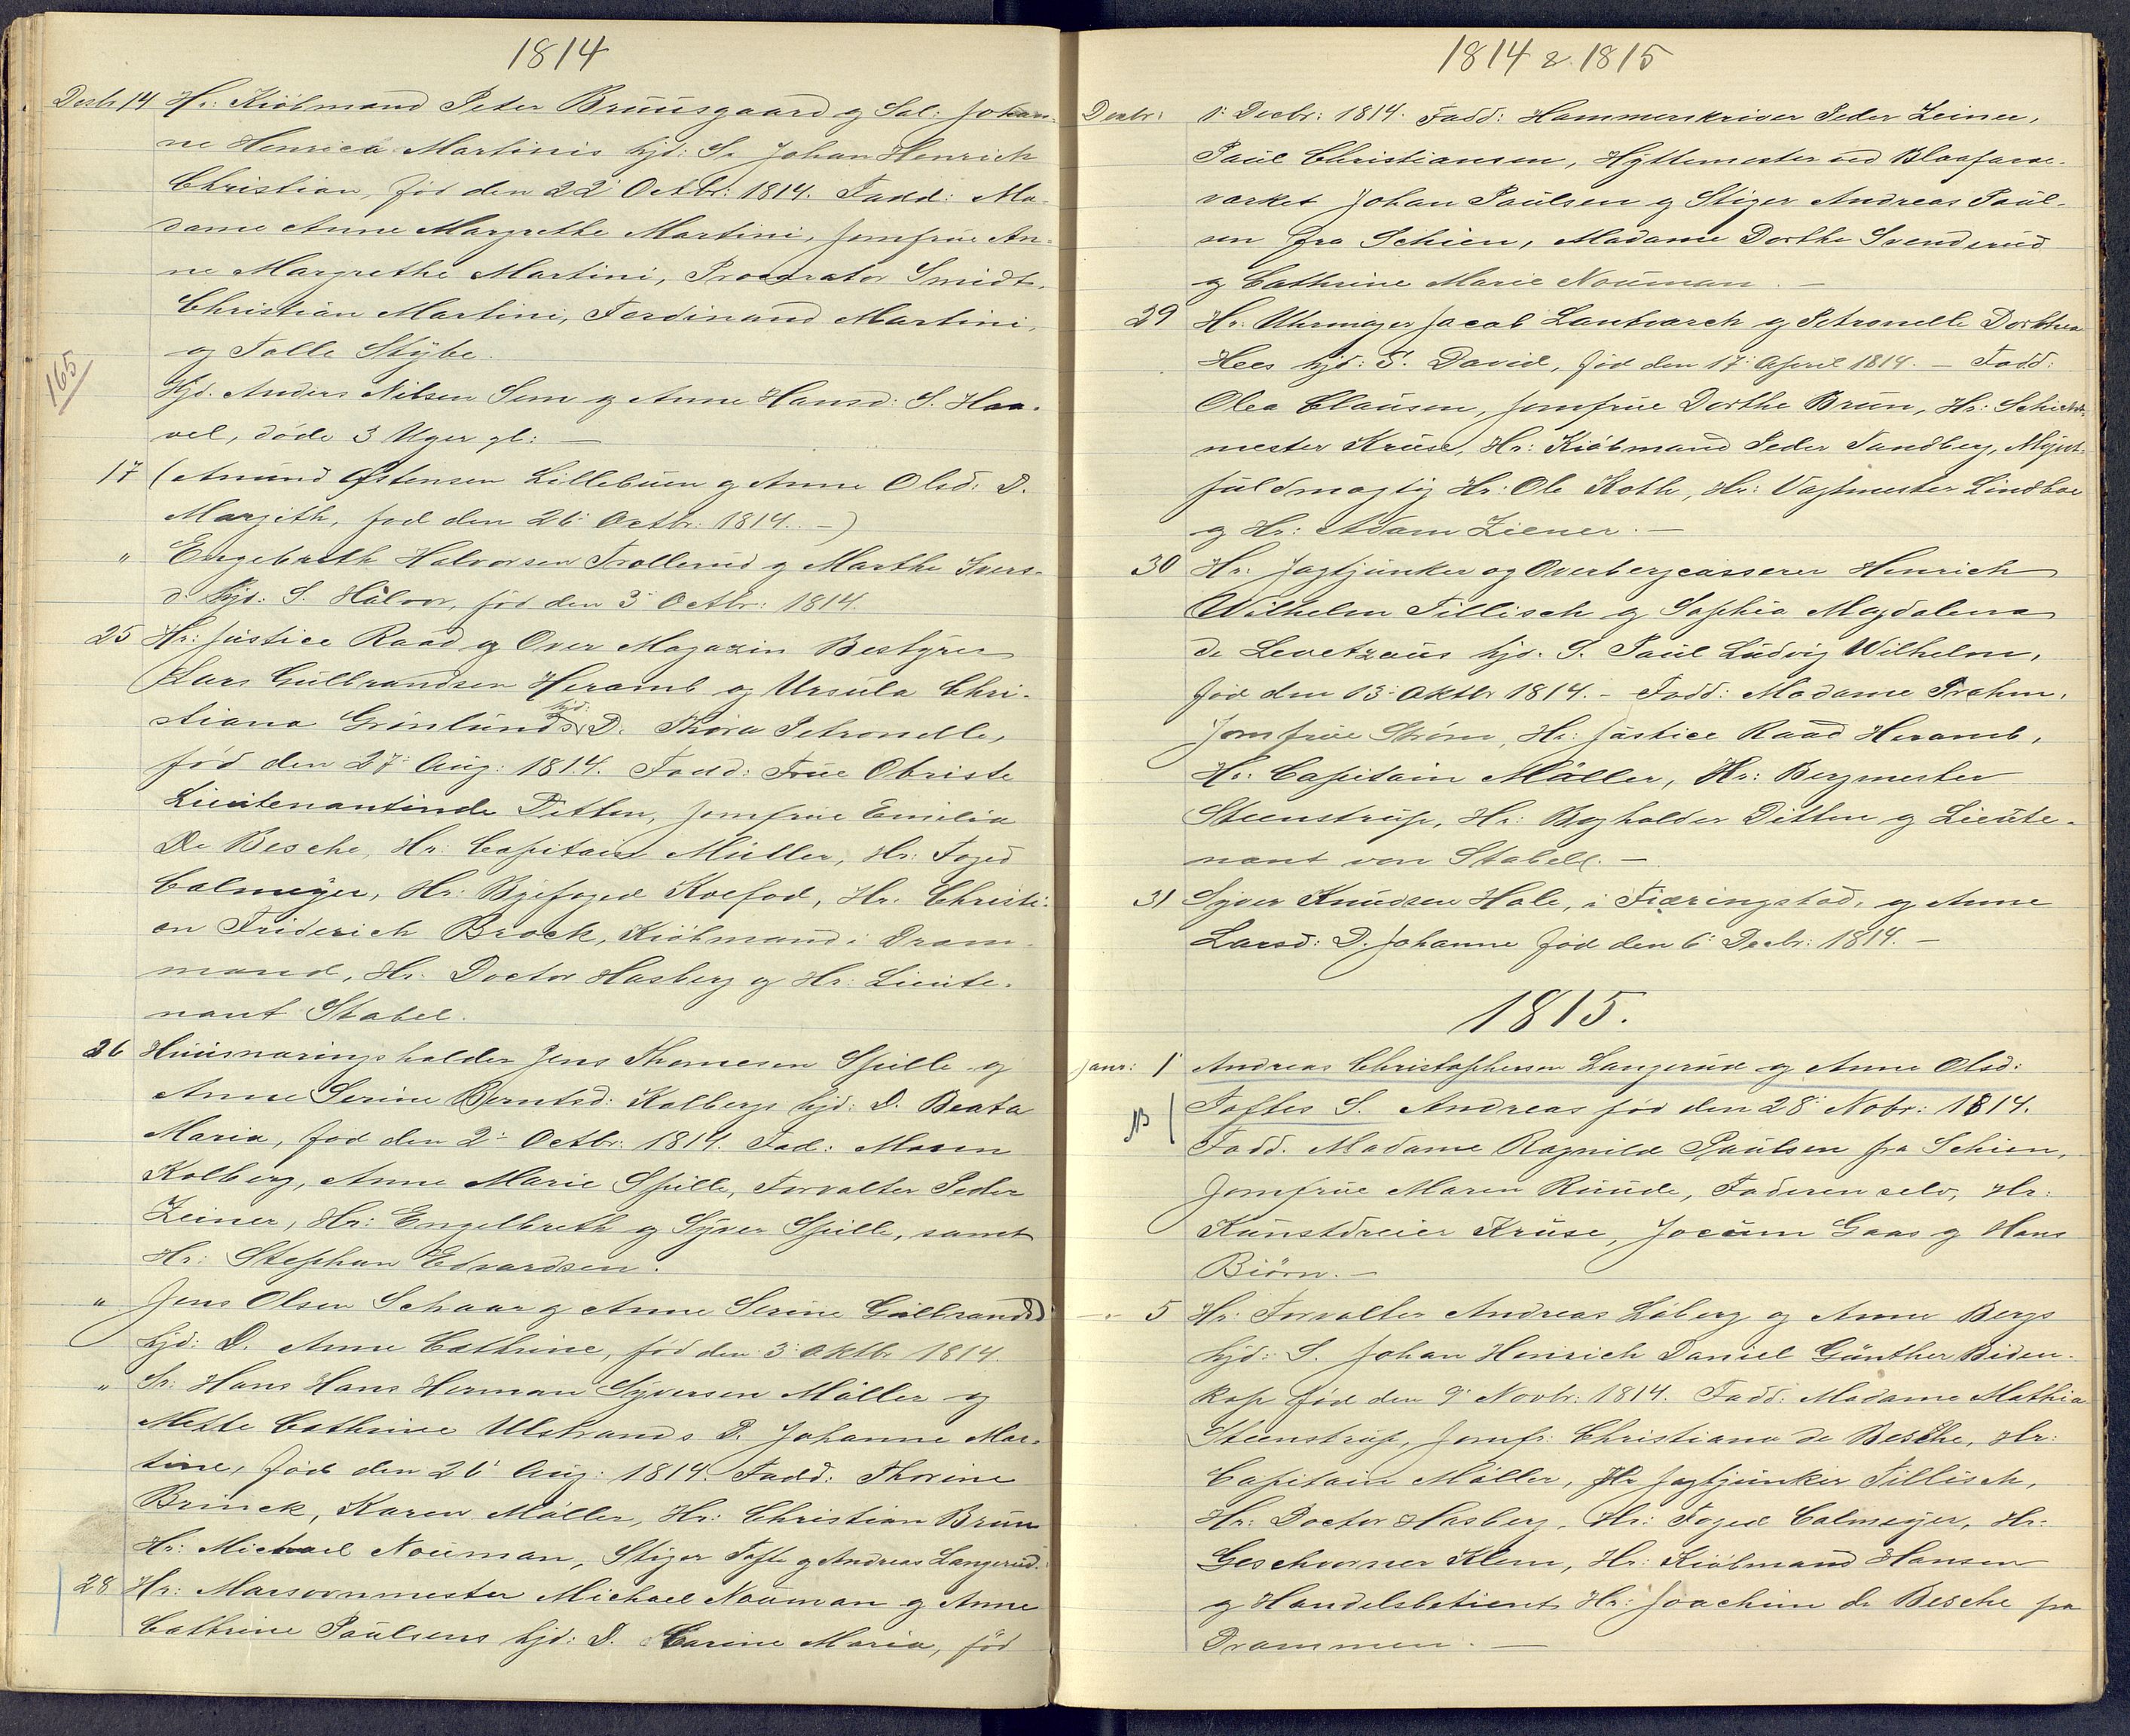 1814
Decbr 14 Hr: Kiöbmand Peter Bruusgaard g Sal: Johan-
ne Henrica Martinis hjd: S. Johan Henrich
Christian, föd den 22' Octbr: 1814. Fadd: Ma-
dame Anne Margrethe Martini, Jomfrue An-
ne Margrethe Martini, Procurator Smidt,
Christian Martini, Ferdinand Martini,
og Tolle Stÿbe.
165
Hjd. Anders Nilsen Sem g Anne Hansd: S. Haa-
vel, döde 3 Uger gl: —
17 (Amund Østensen Lillebuen g Anne Olsd: D.
Margith, föd den 26' Octbr: 1814. —)
" Engebreth Halvorsen Trollerud g Marthe Ivers-
d: hjd: S. Halvor, föd den 3' Octbr: 1814.
25 Hr: Justice Raad og Over Magazin Bestyrer
Lars Gulbrandsen Heramb og Ursula Chri-
stiana Grönlunds hjd: D. Thora Petronelle,
föd den 27' Aug: 1814. Fadd: Frue Obriste
Lieutenantinde Ditten, Jomfrue Emilia
De Besche, Hr: Capitain Müller, Hr: Foged
Calmeÿer, Hr: Byefoged Koefod, Hr. Christi-
an Friderich Brock, Kiöbmand i Dram-
mand, Hr. Doctor Hasberg g Hr: Lieute-
nant Stabel.
26 Huusnaringsholder Jens Thomesen Spille g
Anne Serine Berntsd: Kolbergs hjd: D. Beata
Maria, föd den 2' Octbr: 1814. Fad: Maren
Kolberg, Anne Marie Spille, Forvalter Peder
Zeiner, Hr: Engelbreth g Sÿver Spille, samt
Hr: Stephan Edvardsen.
" Jens Olsen Schaar g Anne Serine Gulbrandsd
hjd: D. Anne Cathrine, föd den 3' Oktbr 1814.
" Sr: Hans Hans Herman Sÿversen Möller og
Mette Cathrine Ulstrands D. Johanne Mar-
tine, föd den 26' Aug: 1814. Fadd: Thorine
Brinck, Karen Möller, Hr: Christian Brun
Hr: Michael Nouman, Stiger Tofte g Andreas Langerud.
28 Hr: Marsovnmester Michael Nouman g Anne
Cathrine Paulsens hjd: D. Carine Maria, föd
1814 & 1815
Decbr: 1' Decbr: 1814. Fadd: Hammerskriver Peder Zeiner,
Paul Christiansen, Hyttemester ved Blaafarve-
værket Johan Paulsen g Stiger Andreas Paul-
sen fra Schien, Madame Dorthe Svendsrud
g Cathrine Marie Nouman. —
29 Hr: Uhrmager Jacob Lautvarch g Petronelle Dorthea
Hees hjd: S. David, föd den 17' April 1814. — Fadd:
Olea Clausen, Jomfrue Dorthe Brun, Hr: Schicht-
mester Kruse, Hr: Kiöbmand Peder Sandberg, Mynt-
fuldmægtig Hr: Ole Koth, Hr: Vagtmester Lindboe
g Hr: Adam Ziener. —
30 Hr. Jagtjunker og Overbergcasserer Henrich
Wilhelm Tillisch g Sophia Magdalena
de Levetzaus hjd. S. Paul Ludvig Wilhelm,
föd den 13' Oktbr 1814. — Fadd: Madame Prahm,
Jomfrue Ström, Hr: Justice Raad Heramb,
Hr: Capitain Müller, Hr: Bergmester
Steenstrup, Hr: Bogholder Ditten g Lieute-
nant von Stabell. —
31 Syver Knudsen Hale, i Fiæringstad, g Anne
Larsd: D. Johanne föd den 6' Decbr: 1814. —
1815.
Janr: 1' Andreas Christophersen Langerud g Anne Olsd:
NB Toftes S. Andreas föd den 28' Nobr: 1814.
Fadd. Madame Ragnild Paulsen fra Schien,
Jomfrue Maren Ruude, Faderen selv, Hr:
Kunstdreier Kruse, Jocum Gaas g Hans
Biörn. —
" 5 Hr: Forvalter Andreas Löberg og Anne Bergs
hjd: S. Johan Henrich Daniel Günther Biden-
kap föd den 9' Novbr: 1814. Fadd: Madame Mathia
Steenstrup, Jomfr: Christiana de Besche, Hr:
Capitain Möller, Hr Jagtjunker Tillisch,
Hr: Doctor Hasberg, Hr: Foged Calmeÿer, Hr:
Geschvorner Klem, Hr: Kiöbmand Hansen
g Handelsbetient Hr: Joachim de Besche fra
Drammen. —